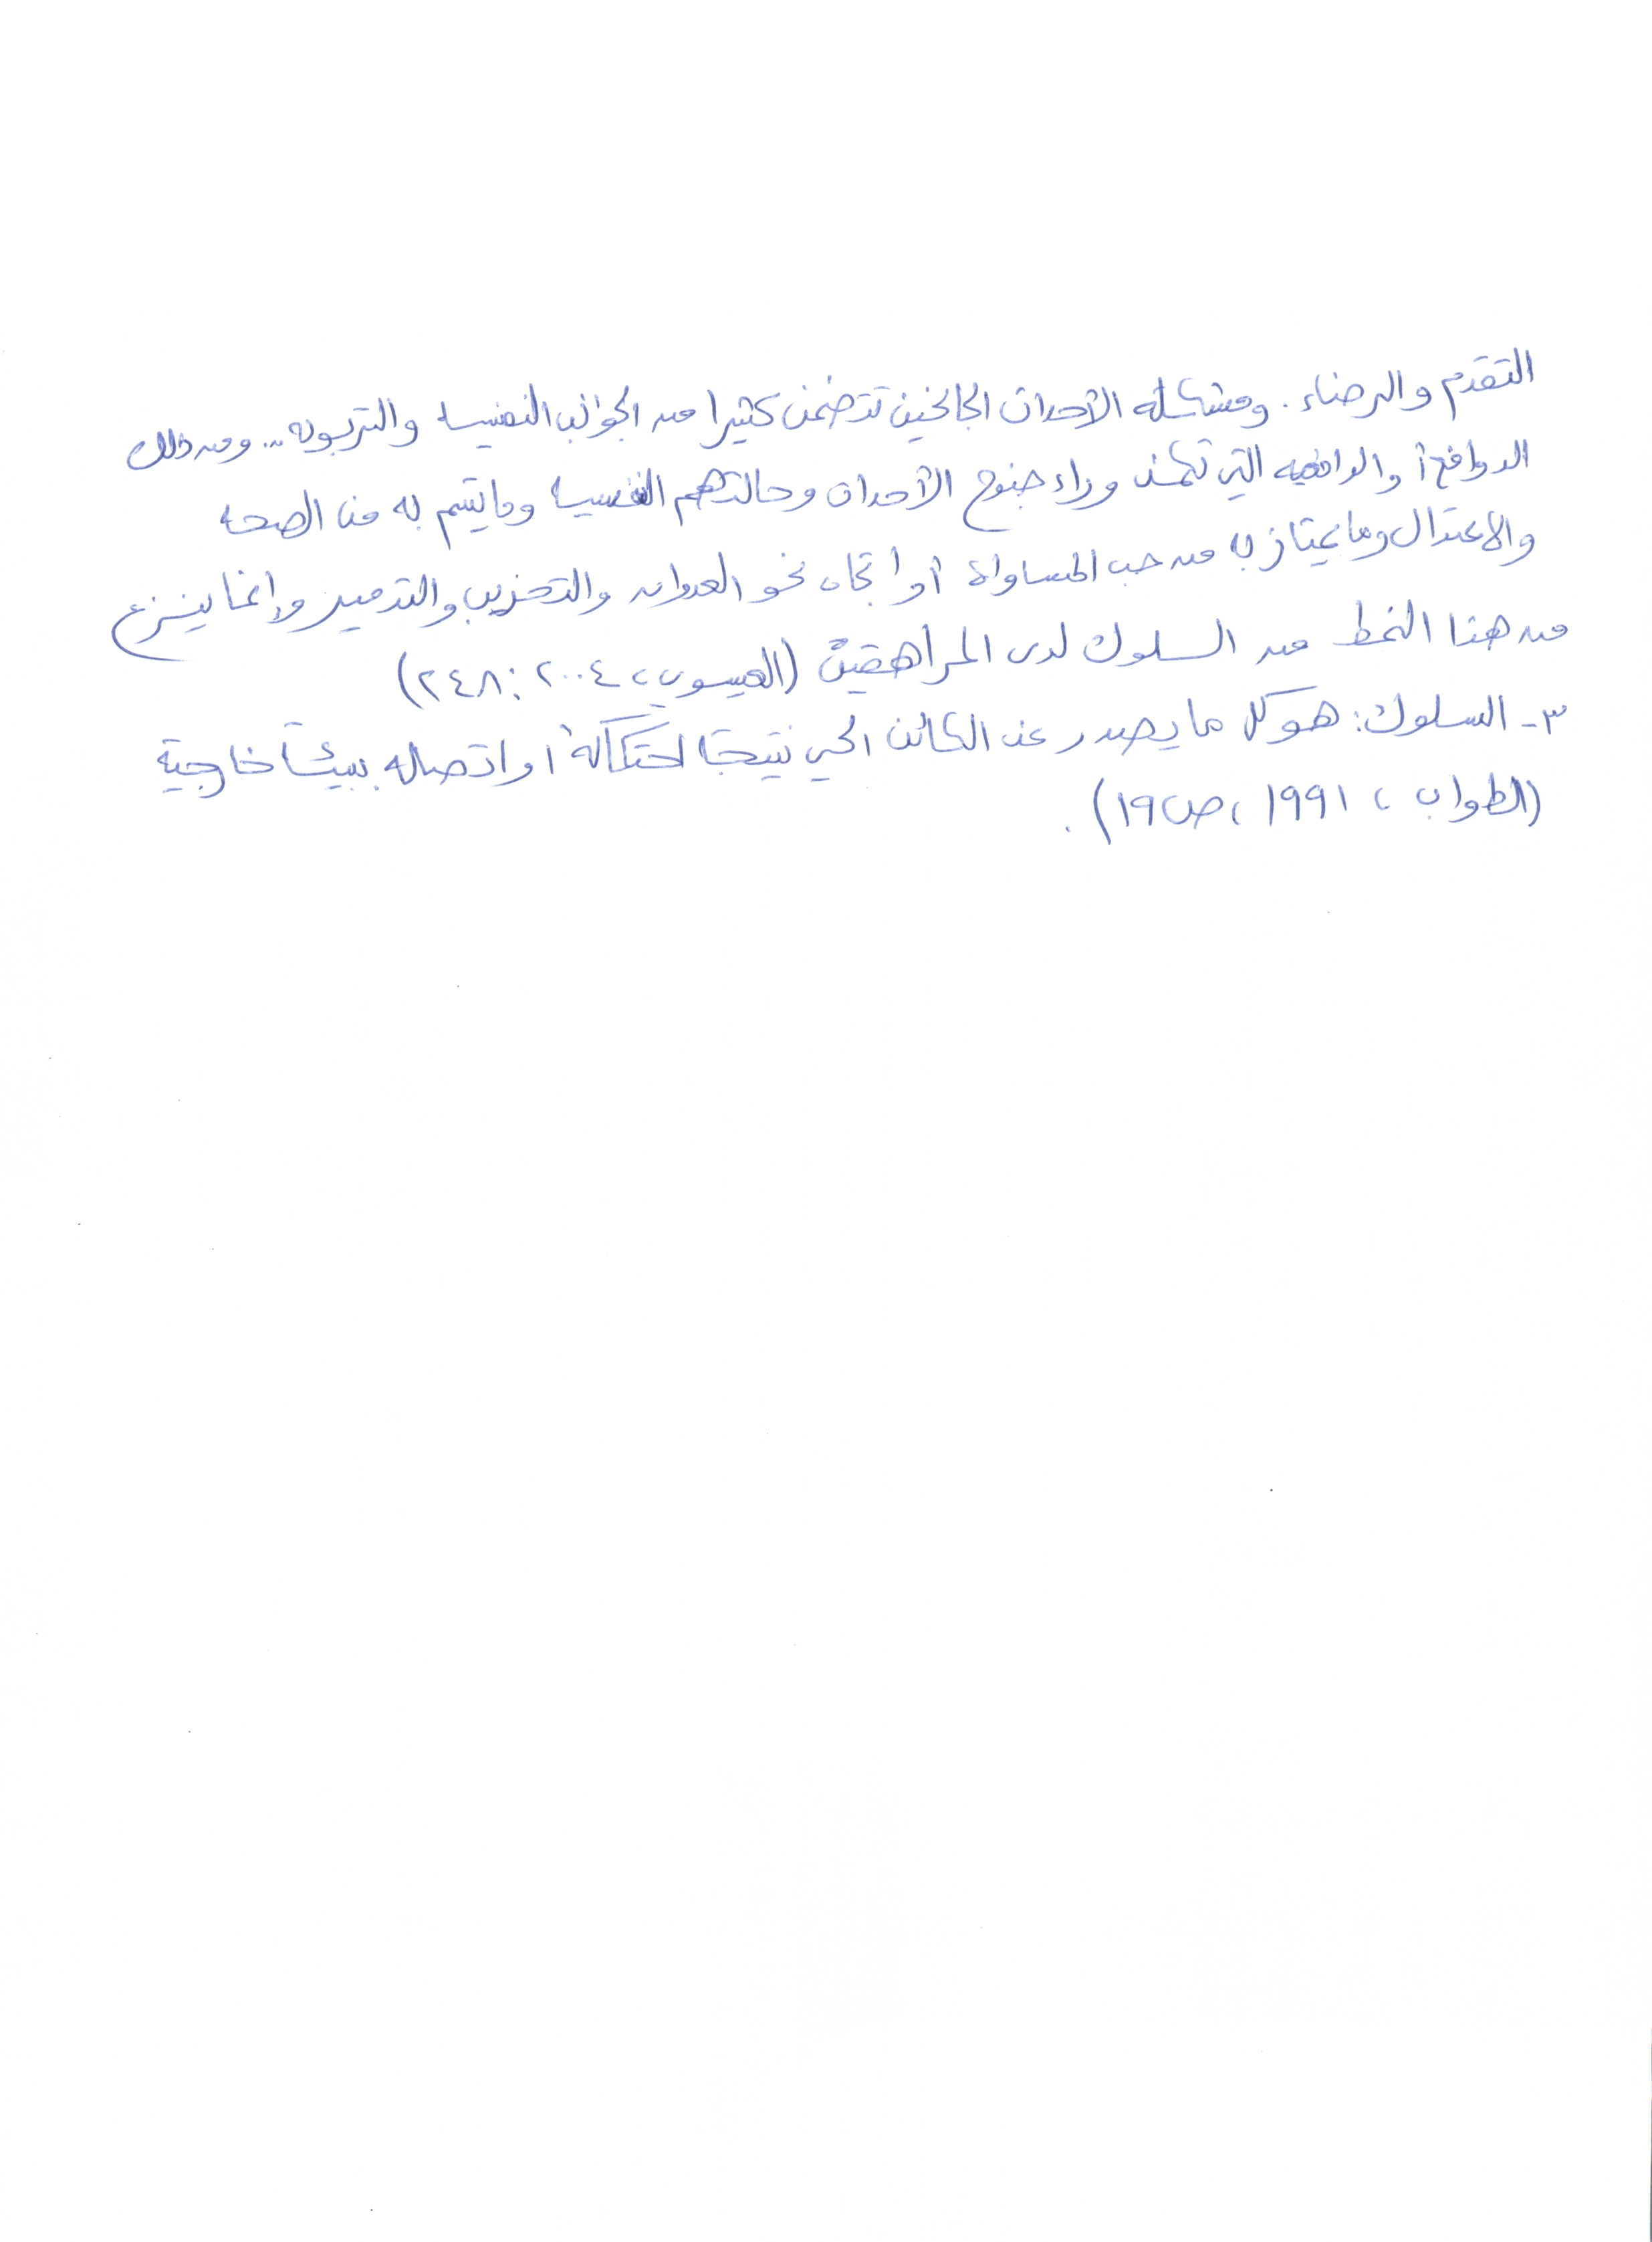 التقدم والرضاء. ومشكلة الأحداث الجانحين تتضمن كثيرا من الجوانب النفسيه والتربويه.. ومن ذلك
الدوافع أ والدافعيه التي تكمن وراء جنوح الأحداث وحالتهم النفسيه وما يتسم به من الصحه
والاعتدال وما يمتاز به من حب المساواة أو اتجاه نحو العدوان والتخريب والتدمير وإنما ينزع
من هذا النمط من السلوك لدى المراهقين (العيسوي، ٢٠٠٤: ٢٤٨)
٣- السلوك: هو كل ما يصدر عن الكائن الحي نتيجة لحتكاكه او اتصاله ببيئة خارجية
(الطواب، ١٩٩١، ص١٩).